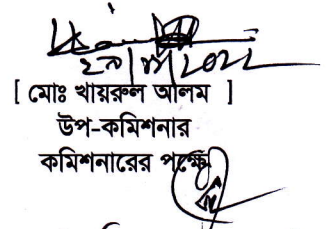 [ মোঃ খায়রুল আলম ]
উপ-কমিশনার
কমিশনারের পক্ষে